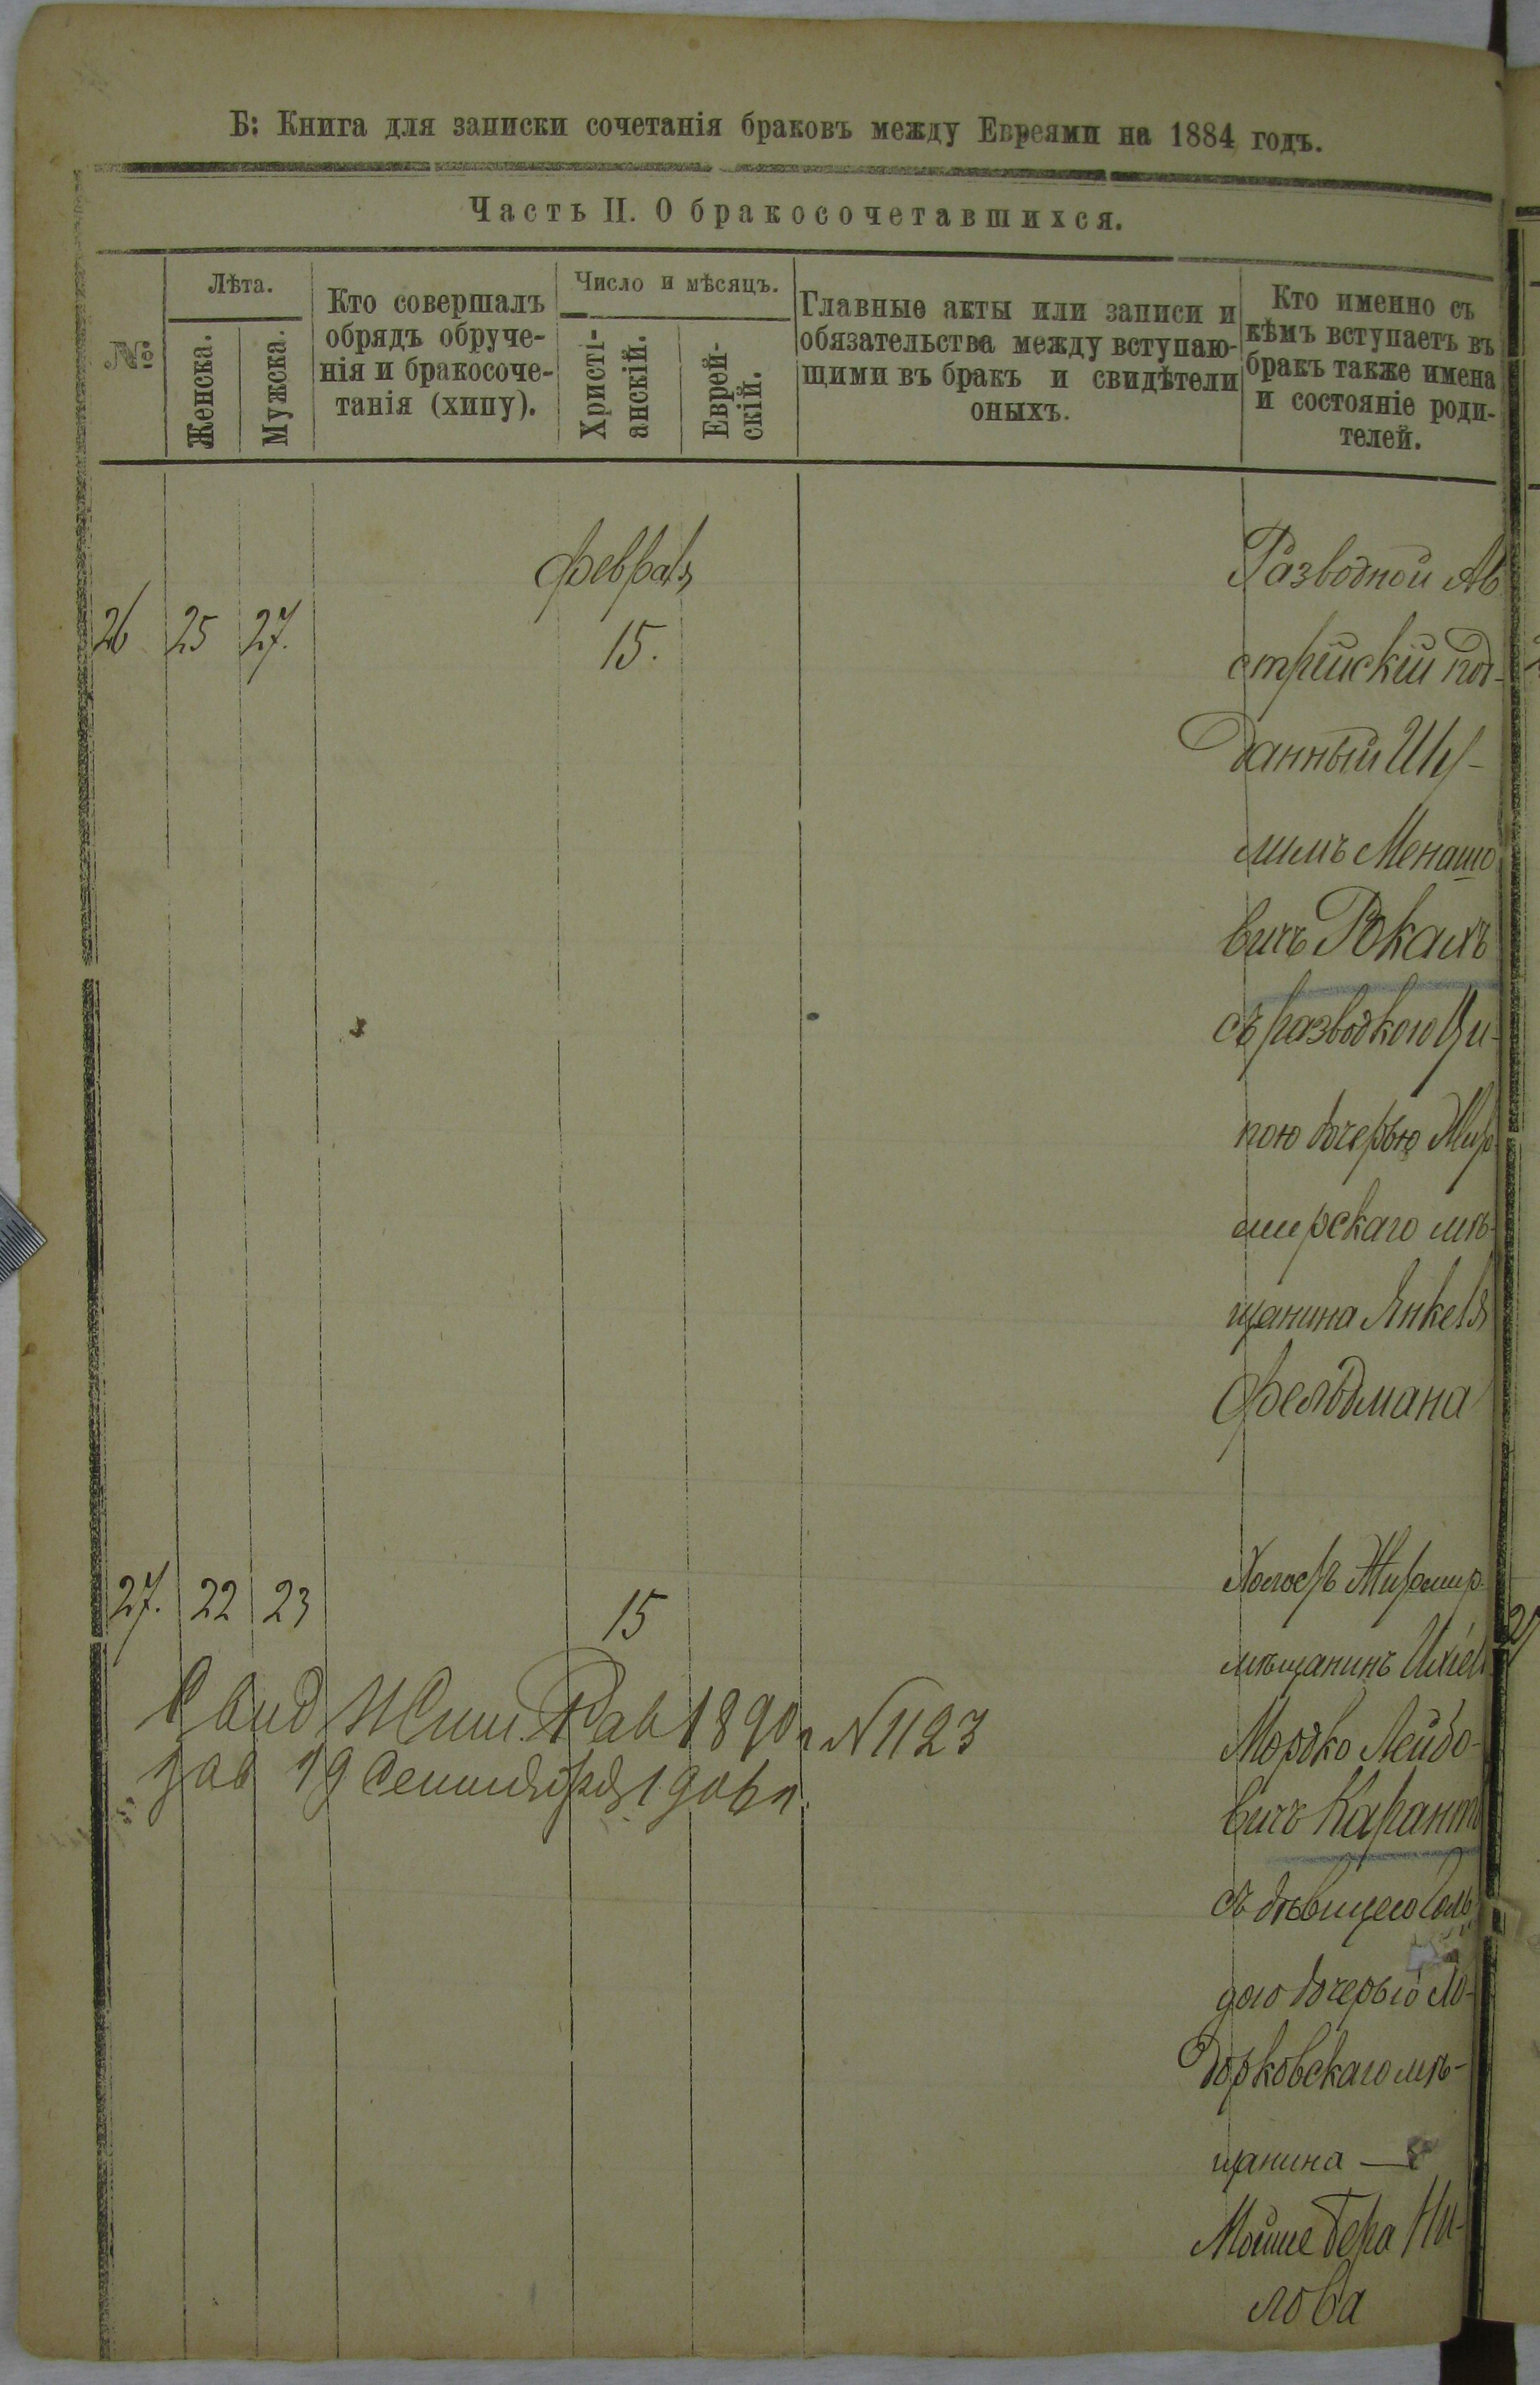 Б: Книга для записки сочетанія браковъ между Евреями на 1884 годъ.
Часть II. О бракосочетавшихся.
№
Лѣта.
Женска.
Мужска.
Кто совершалъ
обрядъ обруче-
нія и бракосоче-
танія (хипу).
Число и мѣсяцъ.
Христі-
анскій.
Еврей-
скій.
Главные акты или записи и
обязательства между вступаю-
щими въ бракъ и свидѣтели
оныхъ.
Кто именно съ
кѣмъ вступаетъ въ
бракъ также имена
и состояніе роди-
телей.
февраля
26 25 27. 15.
Разводной Ав
стрійскій под-
данный Шу-
лимъ Менашо
вичъ Рокахъ
съ разводкою Ци-
пою дочерью Жит
мирскаго мѣ-
щанина Янкеля
Фельдмана
27. 22 23 15
Холостъ Житомир.
мѣщанинъ Ихіел
Мордко Лейбо-
вичъ Карант
съ дѣвицею Голь
дою дочерью
мѣ-
щанина —
Мойше Бера
лова
Р вид Жит. Рав 1890 г N 1123
19 Сентября 1906 г.